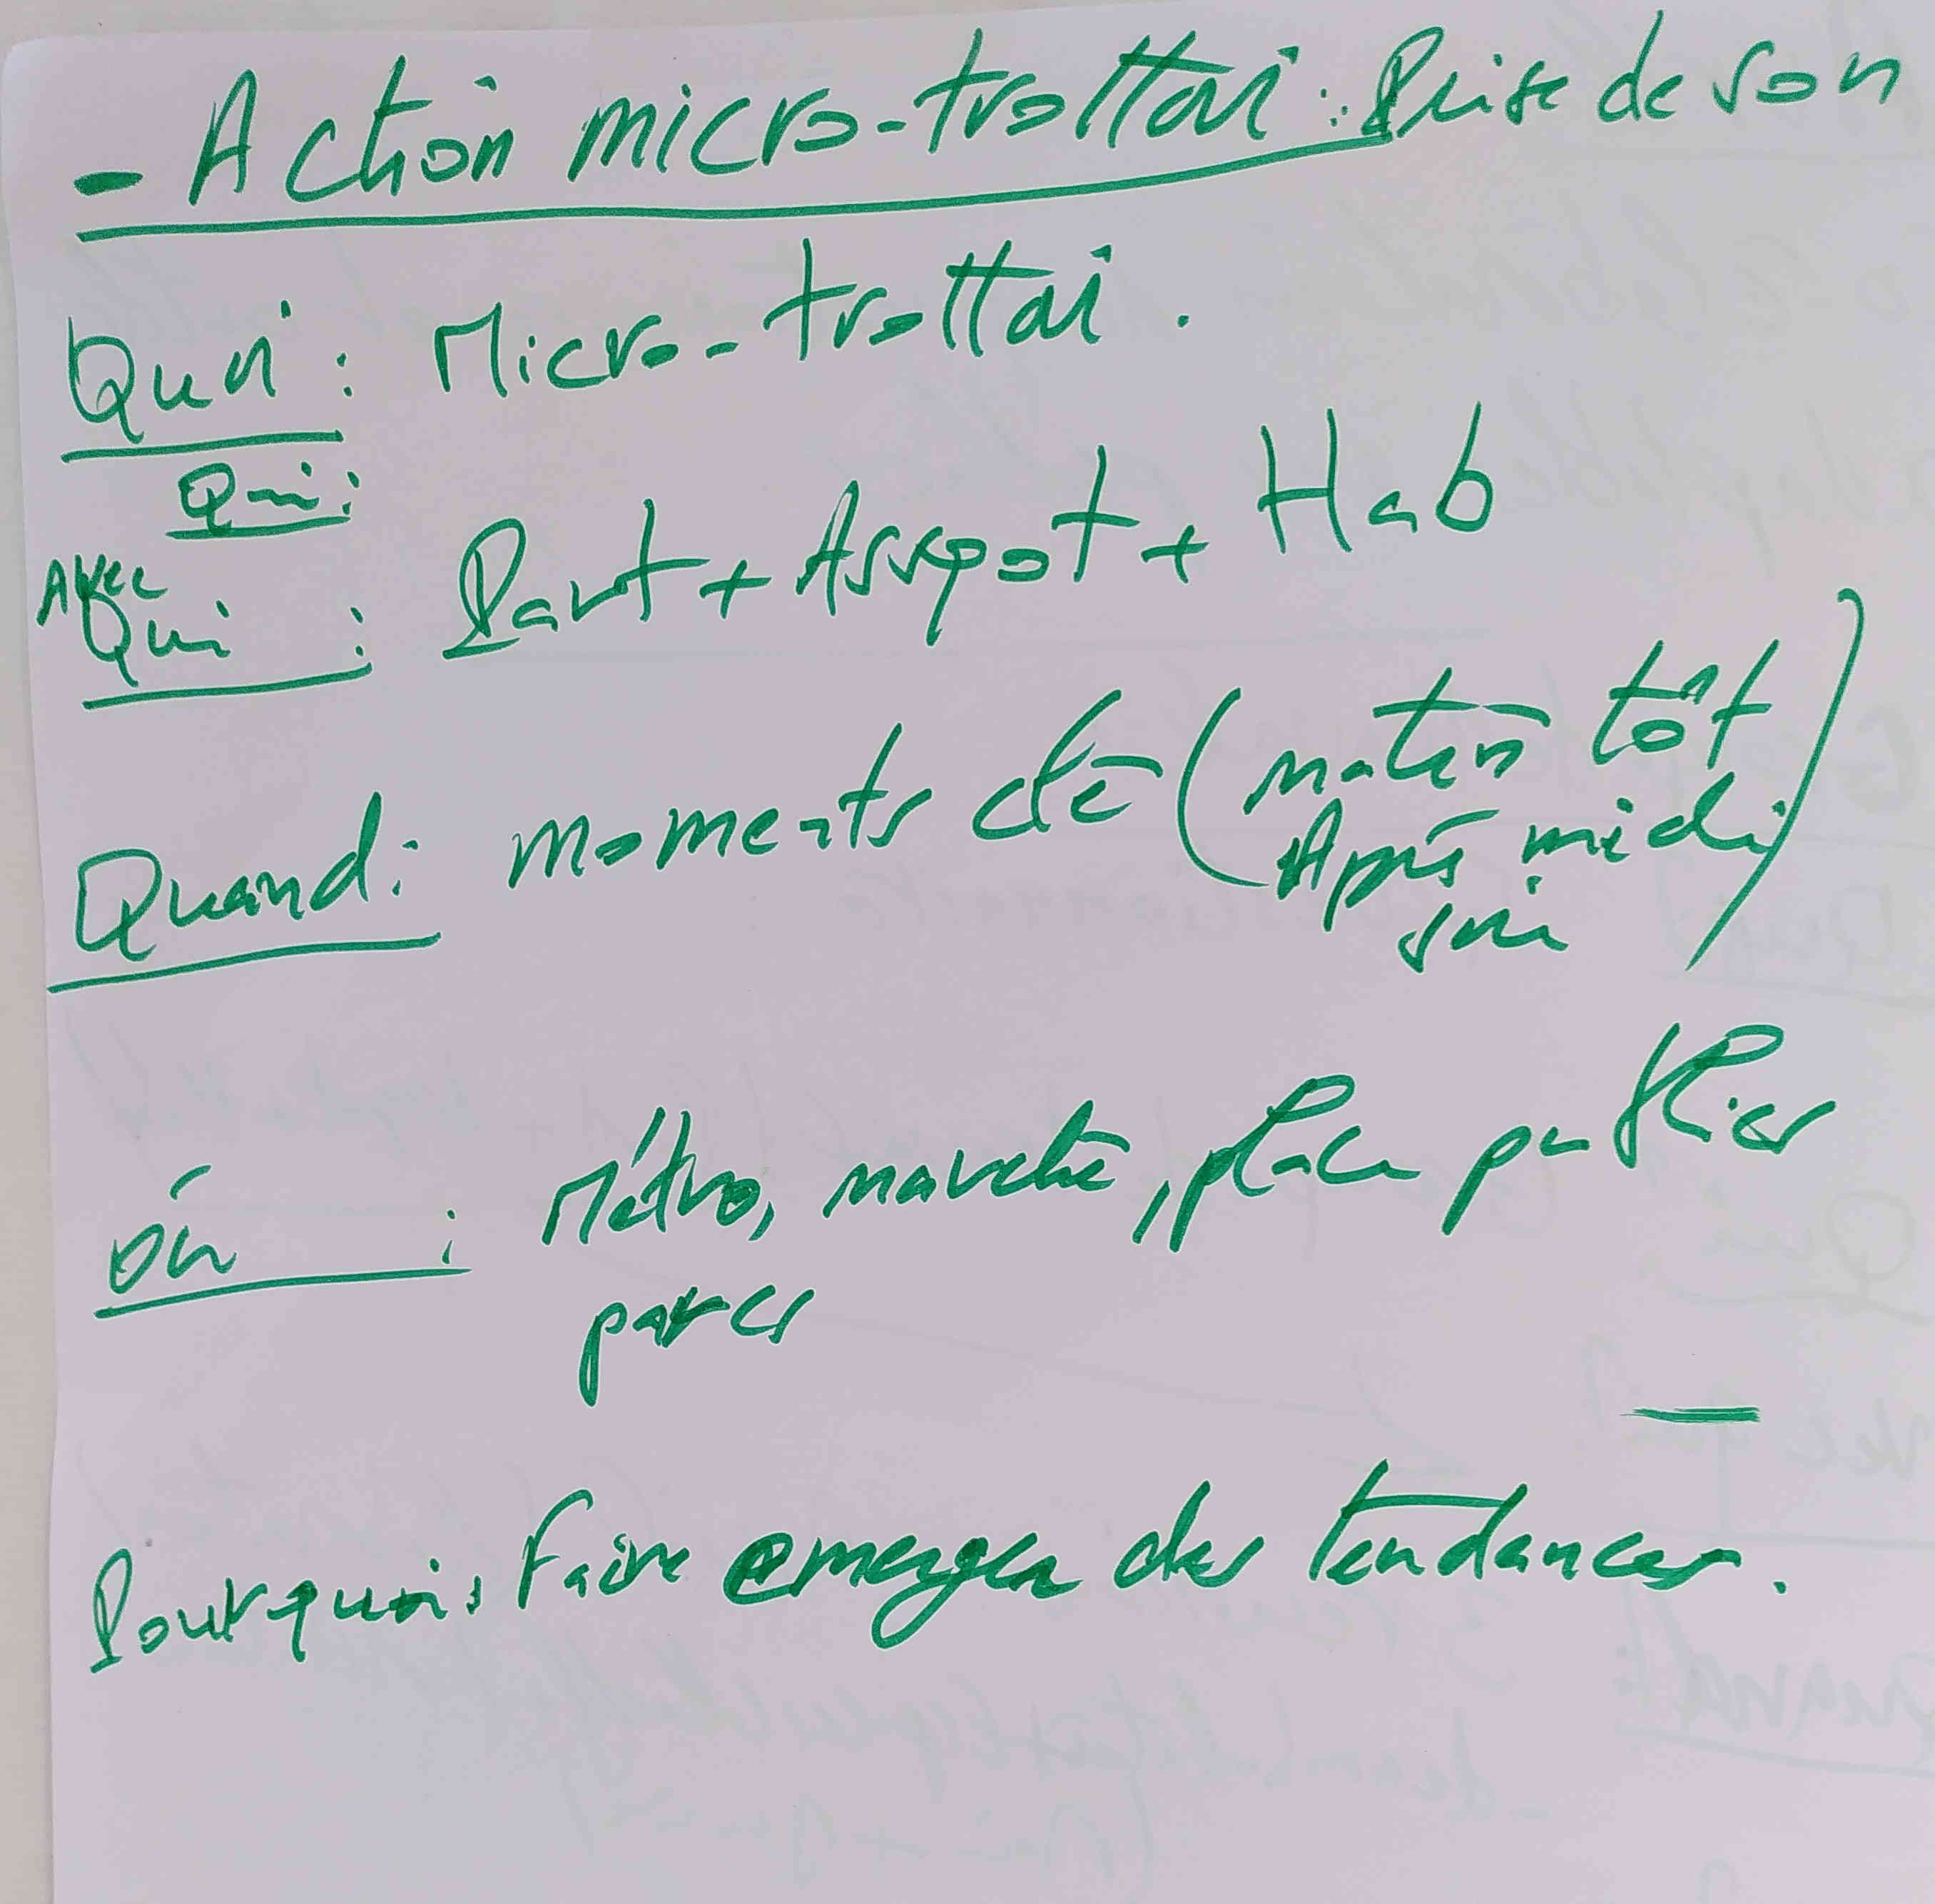 - Action micro-trottoir : Prise de son
Quoi : Micro-trottoir.
Qui :
Avec
Qui : Part + Asspot + Hab
Quand : moments clé (matin tôt
Après midi
soir)
où : Métro, marché, place publics
parcs
Pourquoi : Faire emerger des tendances.